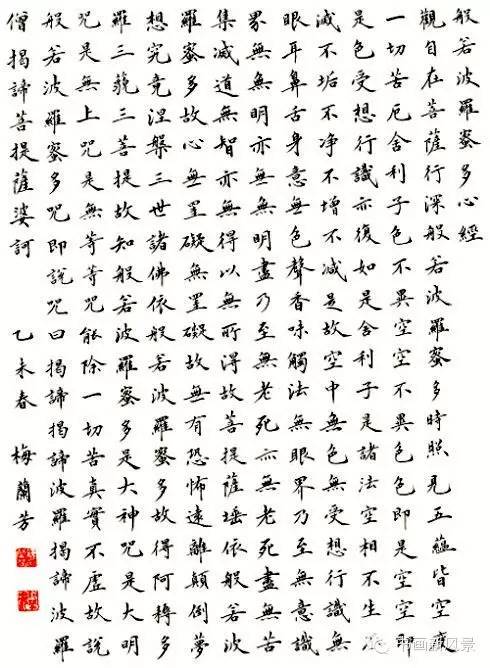 般若波羅蜜多心經
觀自在菩薩行深般若波羅蜜多時照見五蘊皆空度
一切苦厄舍利子色不異空空不異色色即是空空即
是色受想行識亦復如是舍利子是諸法空相不生不
滅不垢不净不增不減是故空中無色無受想行識無
眼耳鼻舌身意無色聲香味觸法無眼界乃至無意識
界無無明亦無無明盡乃至無老死亦無老死盡無苦
集滅道無智亦無得以無所得故菩提薩埵依般若波
羅蜜多故心無罣礙無罣礙故無有恐怖遠離顛倒夢
想究竟涅槃三世諸佛依般若波羅蜜多故得阿耨多
羅三藐三菩提故知般若波羅蜜多是大神咒是大明
咒是無上咒是無等等咒能除一切苦真實不虛故說
般若波羅蜜多咒即說咒曰揭諦揭諦波羅揭諦波羅
僧揭諦菩提薩婆訶 乙未春 梅蘭芳
书画新风景